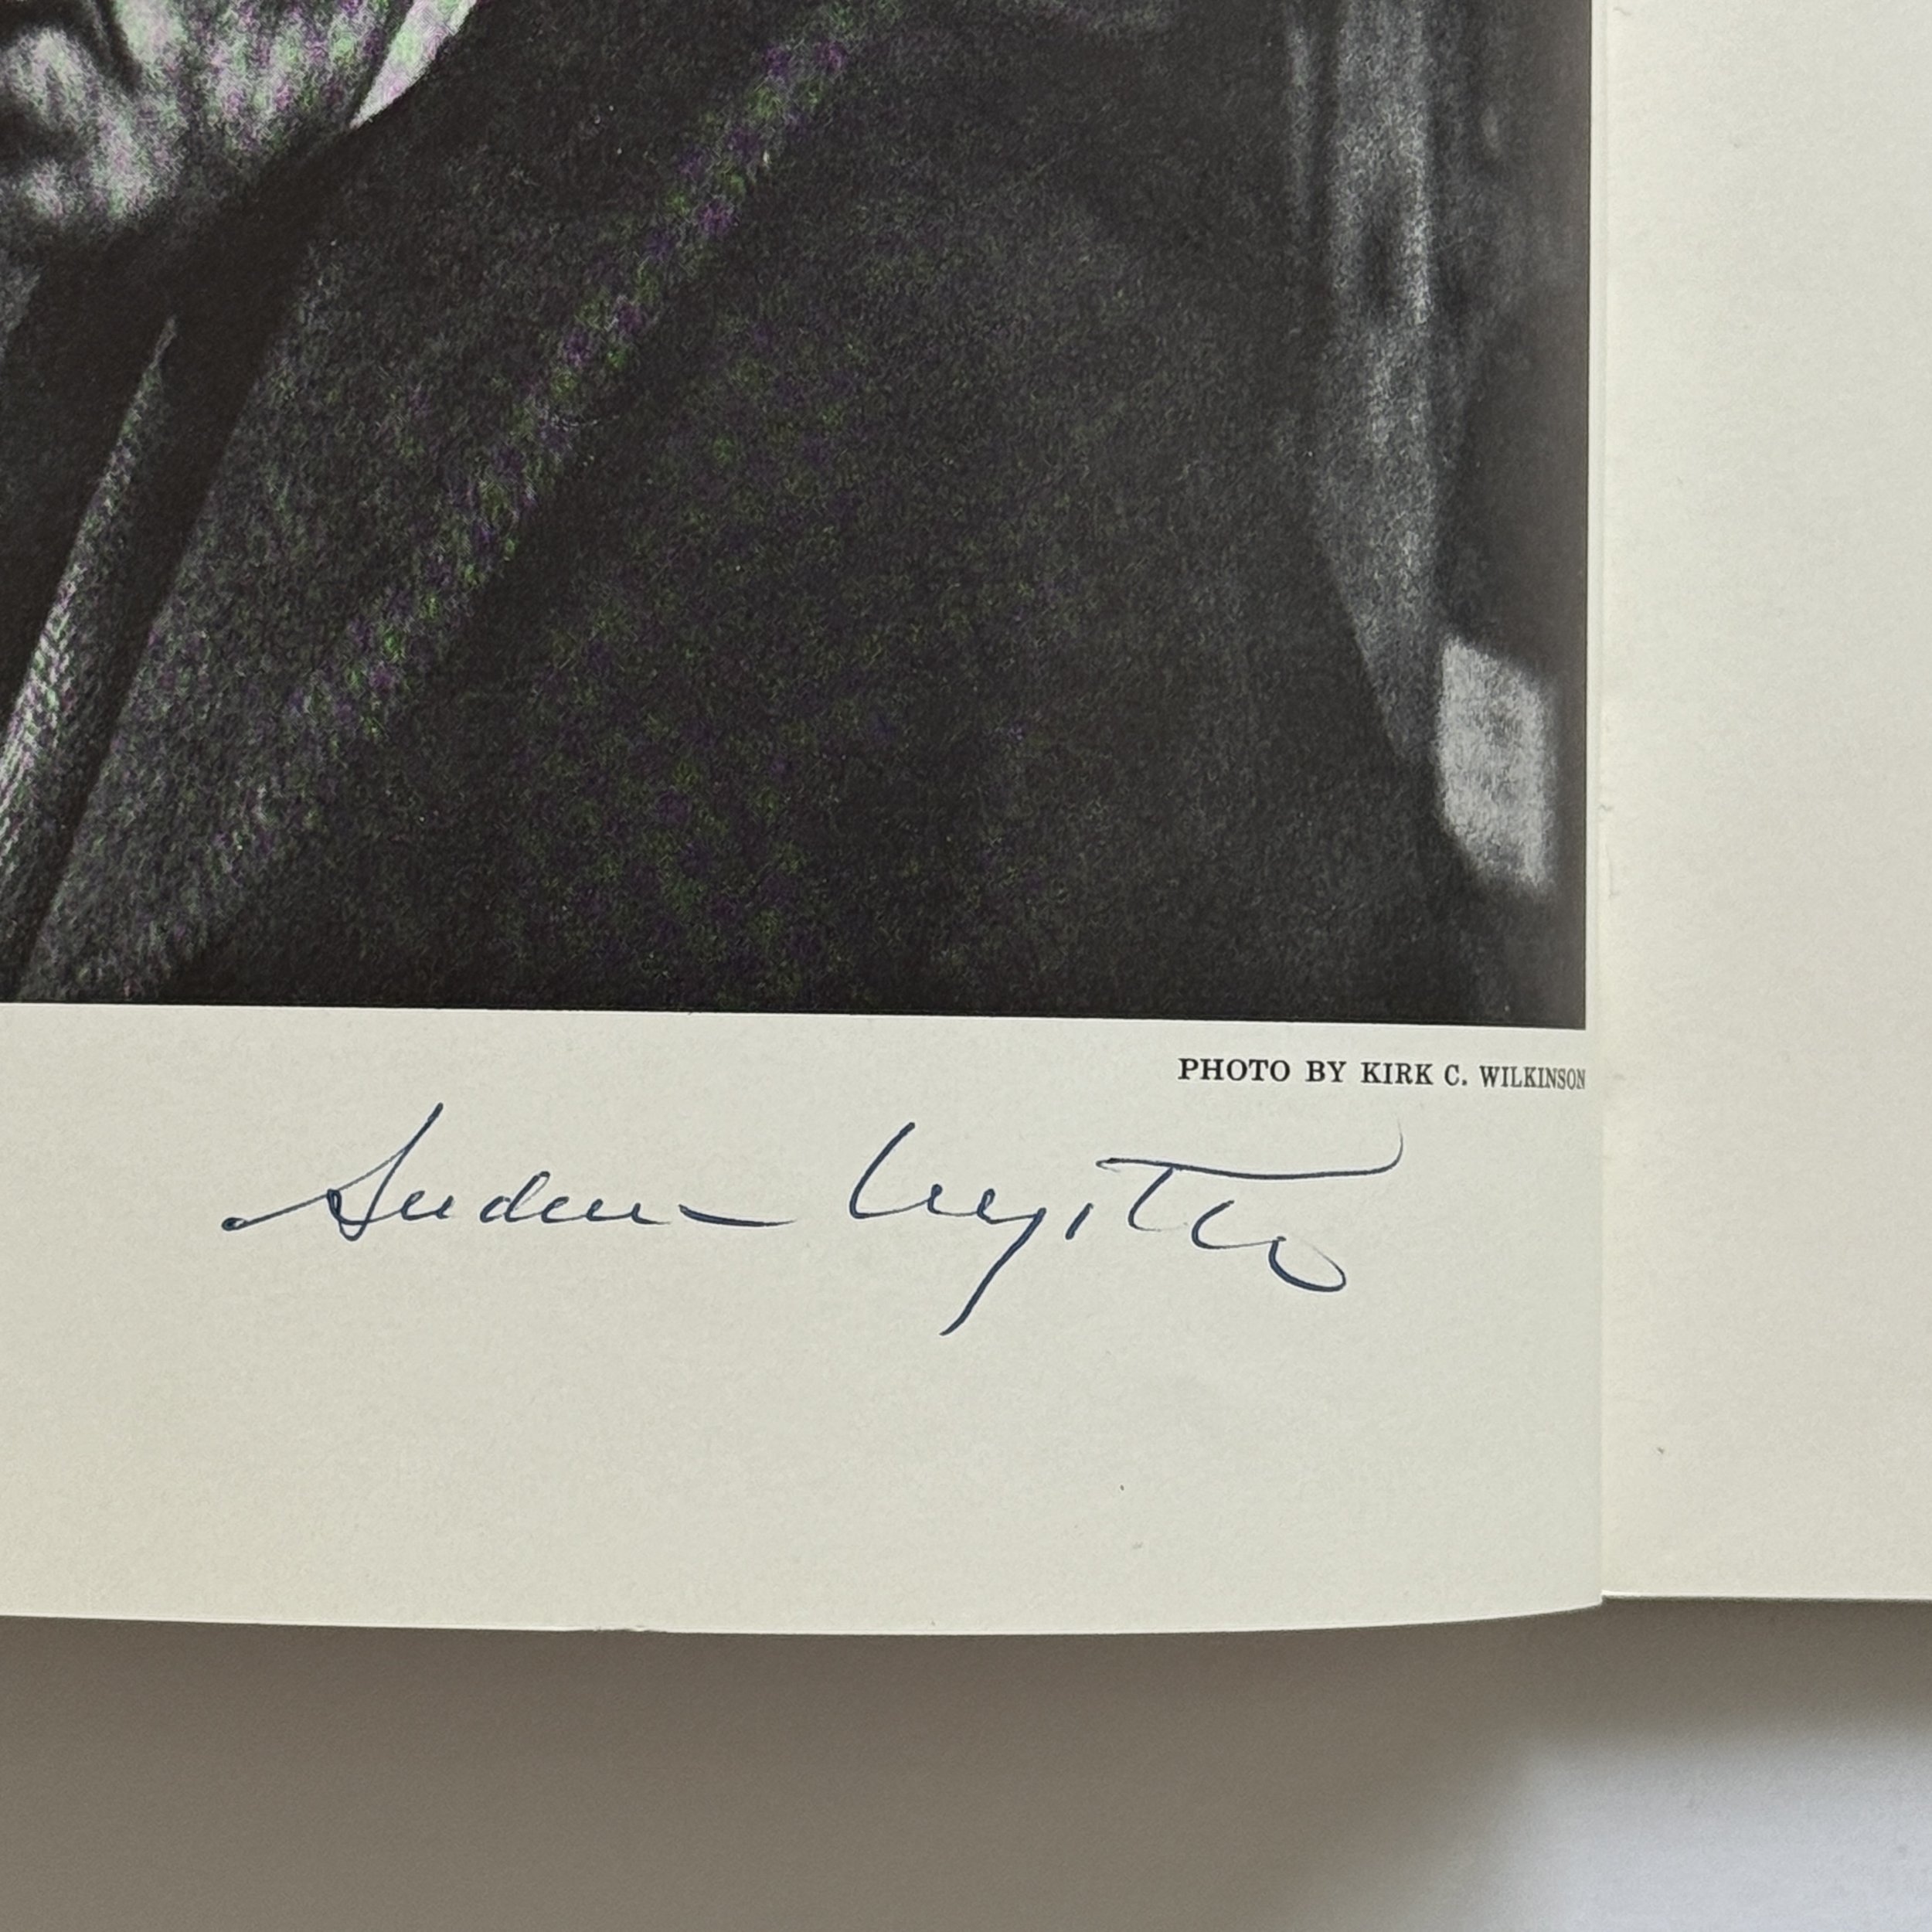 PHOTO BY KIRK C. WILKINSON
Andrew Wyeth